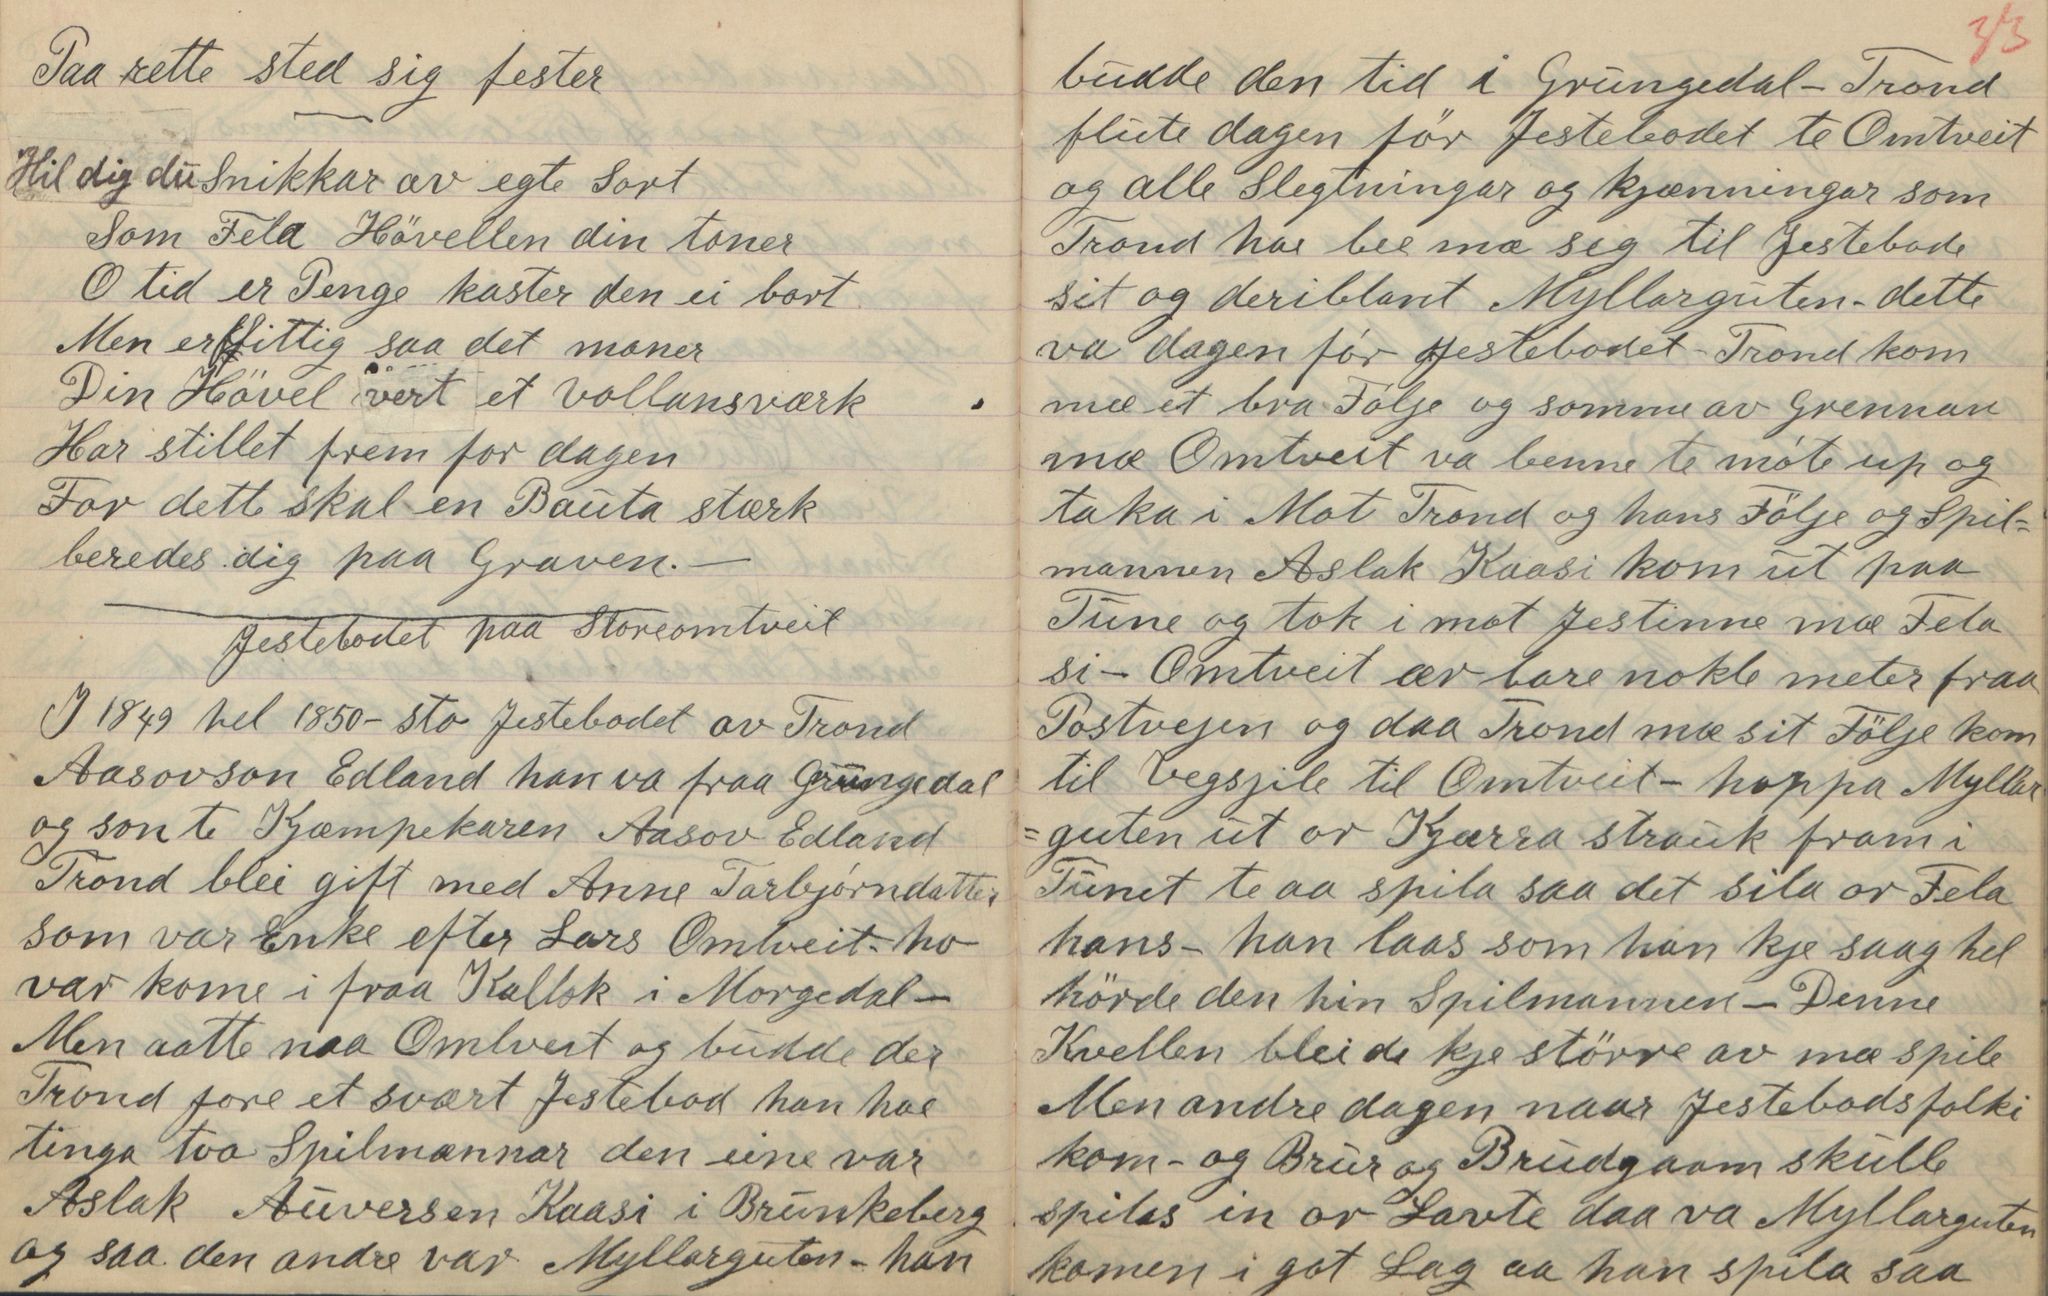 Paa rette sted sig fester
Hil dig du Snikkar av egte Sort
Som Fela Hövellen din toner
O tid er Penge kaster den ei bort
Men er flittig saa det moner
Din Hövel vert et Vollansværk
Har stillet frem for dagen
For dette skal en Bauta stærk
beredes dig paa Graven. —
Jestebodet paa Storeomtveit
I 1849 hel 1850 - sto Jestebodet av Trond
Aasovson Edland han va fraa Grungedal
og son te Kjæmpekaren Aasov Edland
Trond blei gift med Anne Tarbjørndatter
som var Enke efter Lars Omtveit - ho
var kome i fraa Kallok i Morgedal -
Men aatte naa Omtveit og budde der
Trond fore et svært Jestebod han hae
tinga tvo Spilmænnar den eine var
Aslak Auversen Kaasi i Brunkeberg
og saa den andre var Myllarguten - han
33
budde den tid i Grungedal - Trond
flute dagen för Jestebodet te Omtveit
og alle Slegtningar og kjænningar som
Trond hae bee mæ sig til Jestebode
sit og deriblant Myllarguten - dette
va dagen för Jestebodet - Trond kom
mæ et bra Följe og somme av Grennan
mæ Omtveit va benne te möte up og
taka i Mot Trond og hans Följe og Spil=
mannen Aslak Kaasi kom ut paa
Tune og tok i mot Jestinne mæ Fela
si - Omtveit ær bare nokle meter fraa
Postvejen og daa Trond mæ sit Följe kom
til Vegsjile til Omtveit - hoppa Myllar
=guten ut or Kjærra strauk fram i
Tunet te aa spila saa det sila or Fela
hans - han laas som han kje saag hel
hörde den hin Spilmannen - Denne
Kvellen blei de kje större av mæ spile
Men andre dagen naar Jestebodsfolki
kom - og Brur og Brudgaam skulle
spilas in or Lavte daa va Myllarguten
komen i got Lag aa han spila saa